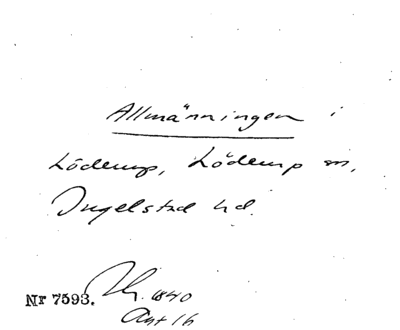 Allmänningen i
Löderup, Löderup sn,
Ingelstad hd.
Nr 7593.
1840
16